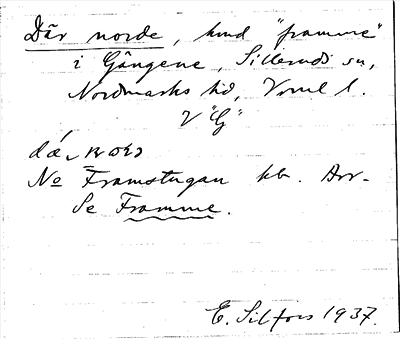 Där norde, hmd "framme"
i Gängene, Sillerud sn,
Nordmarks hd, Vrml l.
V "G"
No Framstugan
Se Framme.
E. Silfors 1937.